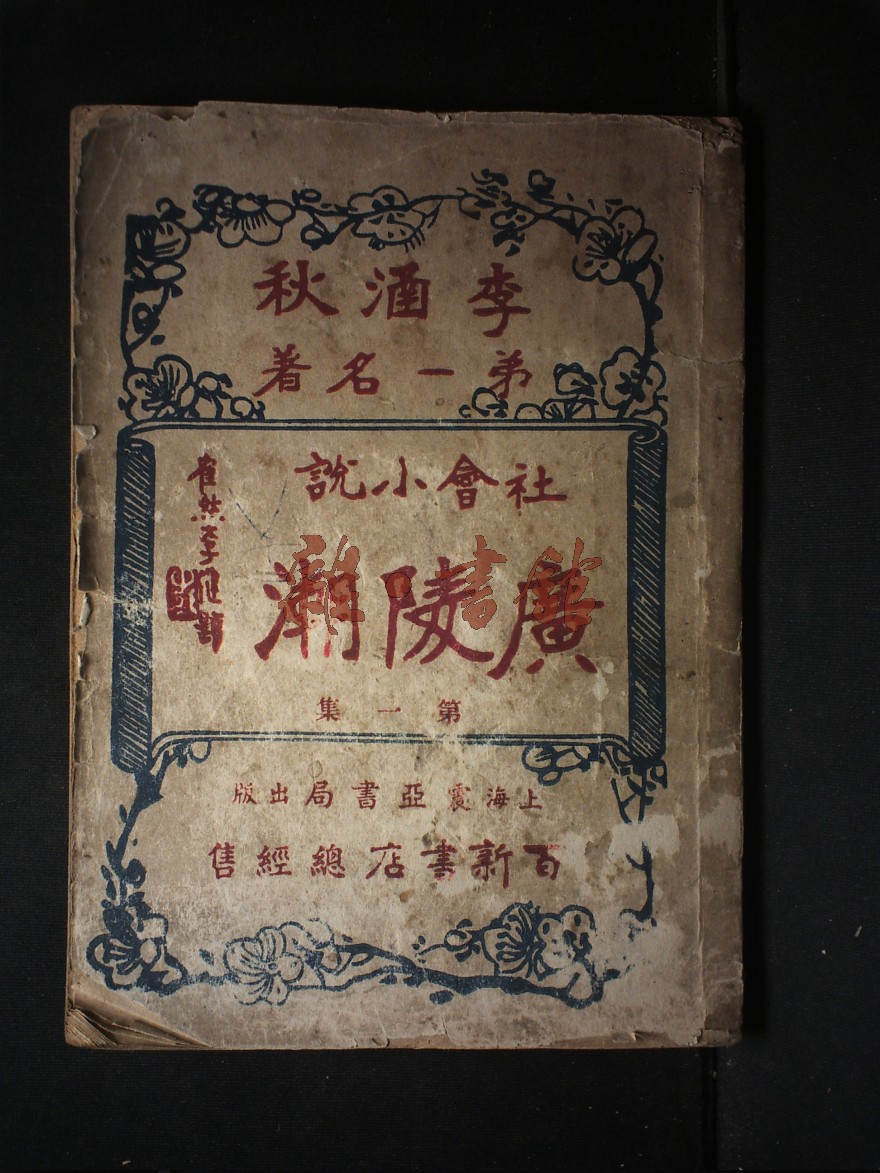 李涵秋
弟一名著
社會小說
廣陵潮
第一集
上海震亞書局出版
百新書店總經售
雜·書館